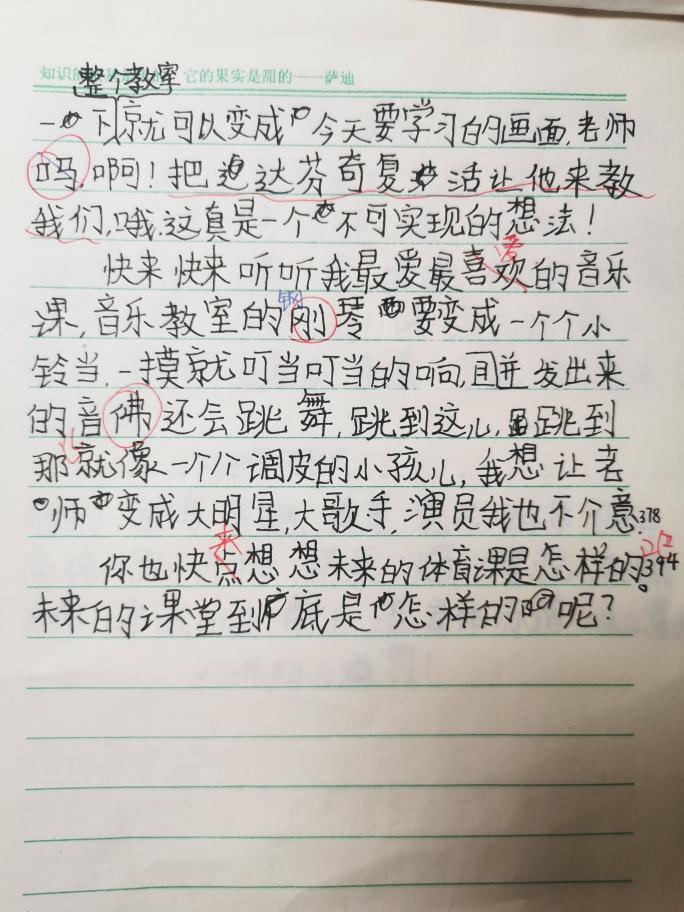 知识的 它的果实是甜的——萨迪
整个教室
一下就可以变成今天要学习的画面,老师
吗,啊!把达芬奇复活让他来教
我们,哦,这真是一个不可实现的想法!
爱
快来快来听听我最爱最喜欢的音乐
钢
课,音乐教室的刚琴要变成一个个小
铃当,一摸就叮当叮当的响,且并发出来
的音佛还会跳舞,跳到这儿,跳到
儿
那就像一个个调皮的小孩儿,我想让老
师变成大明星,大歌手,演员我也不介意.378
来
你也快点想想未来的体育课是怎样的。394
未来的课堂到底是怎样的呢?